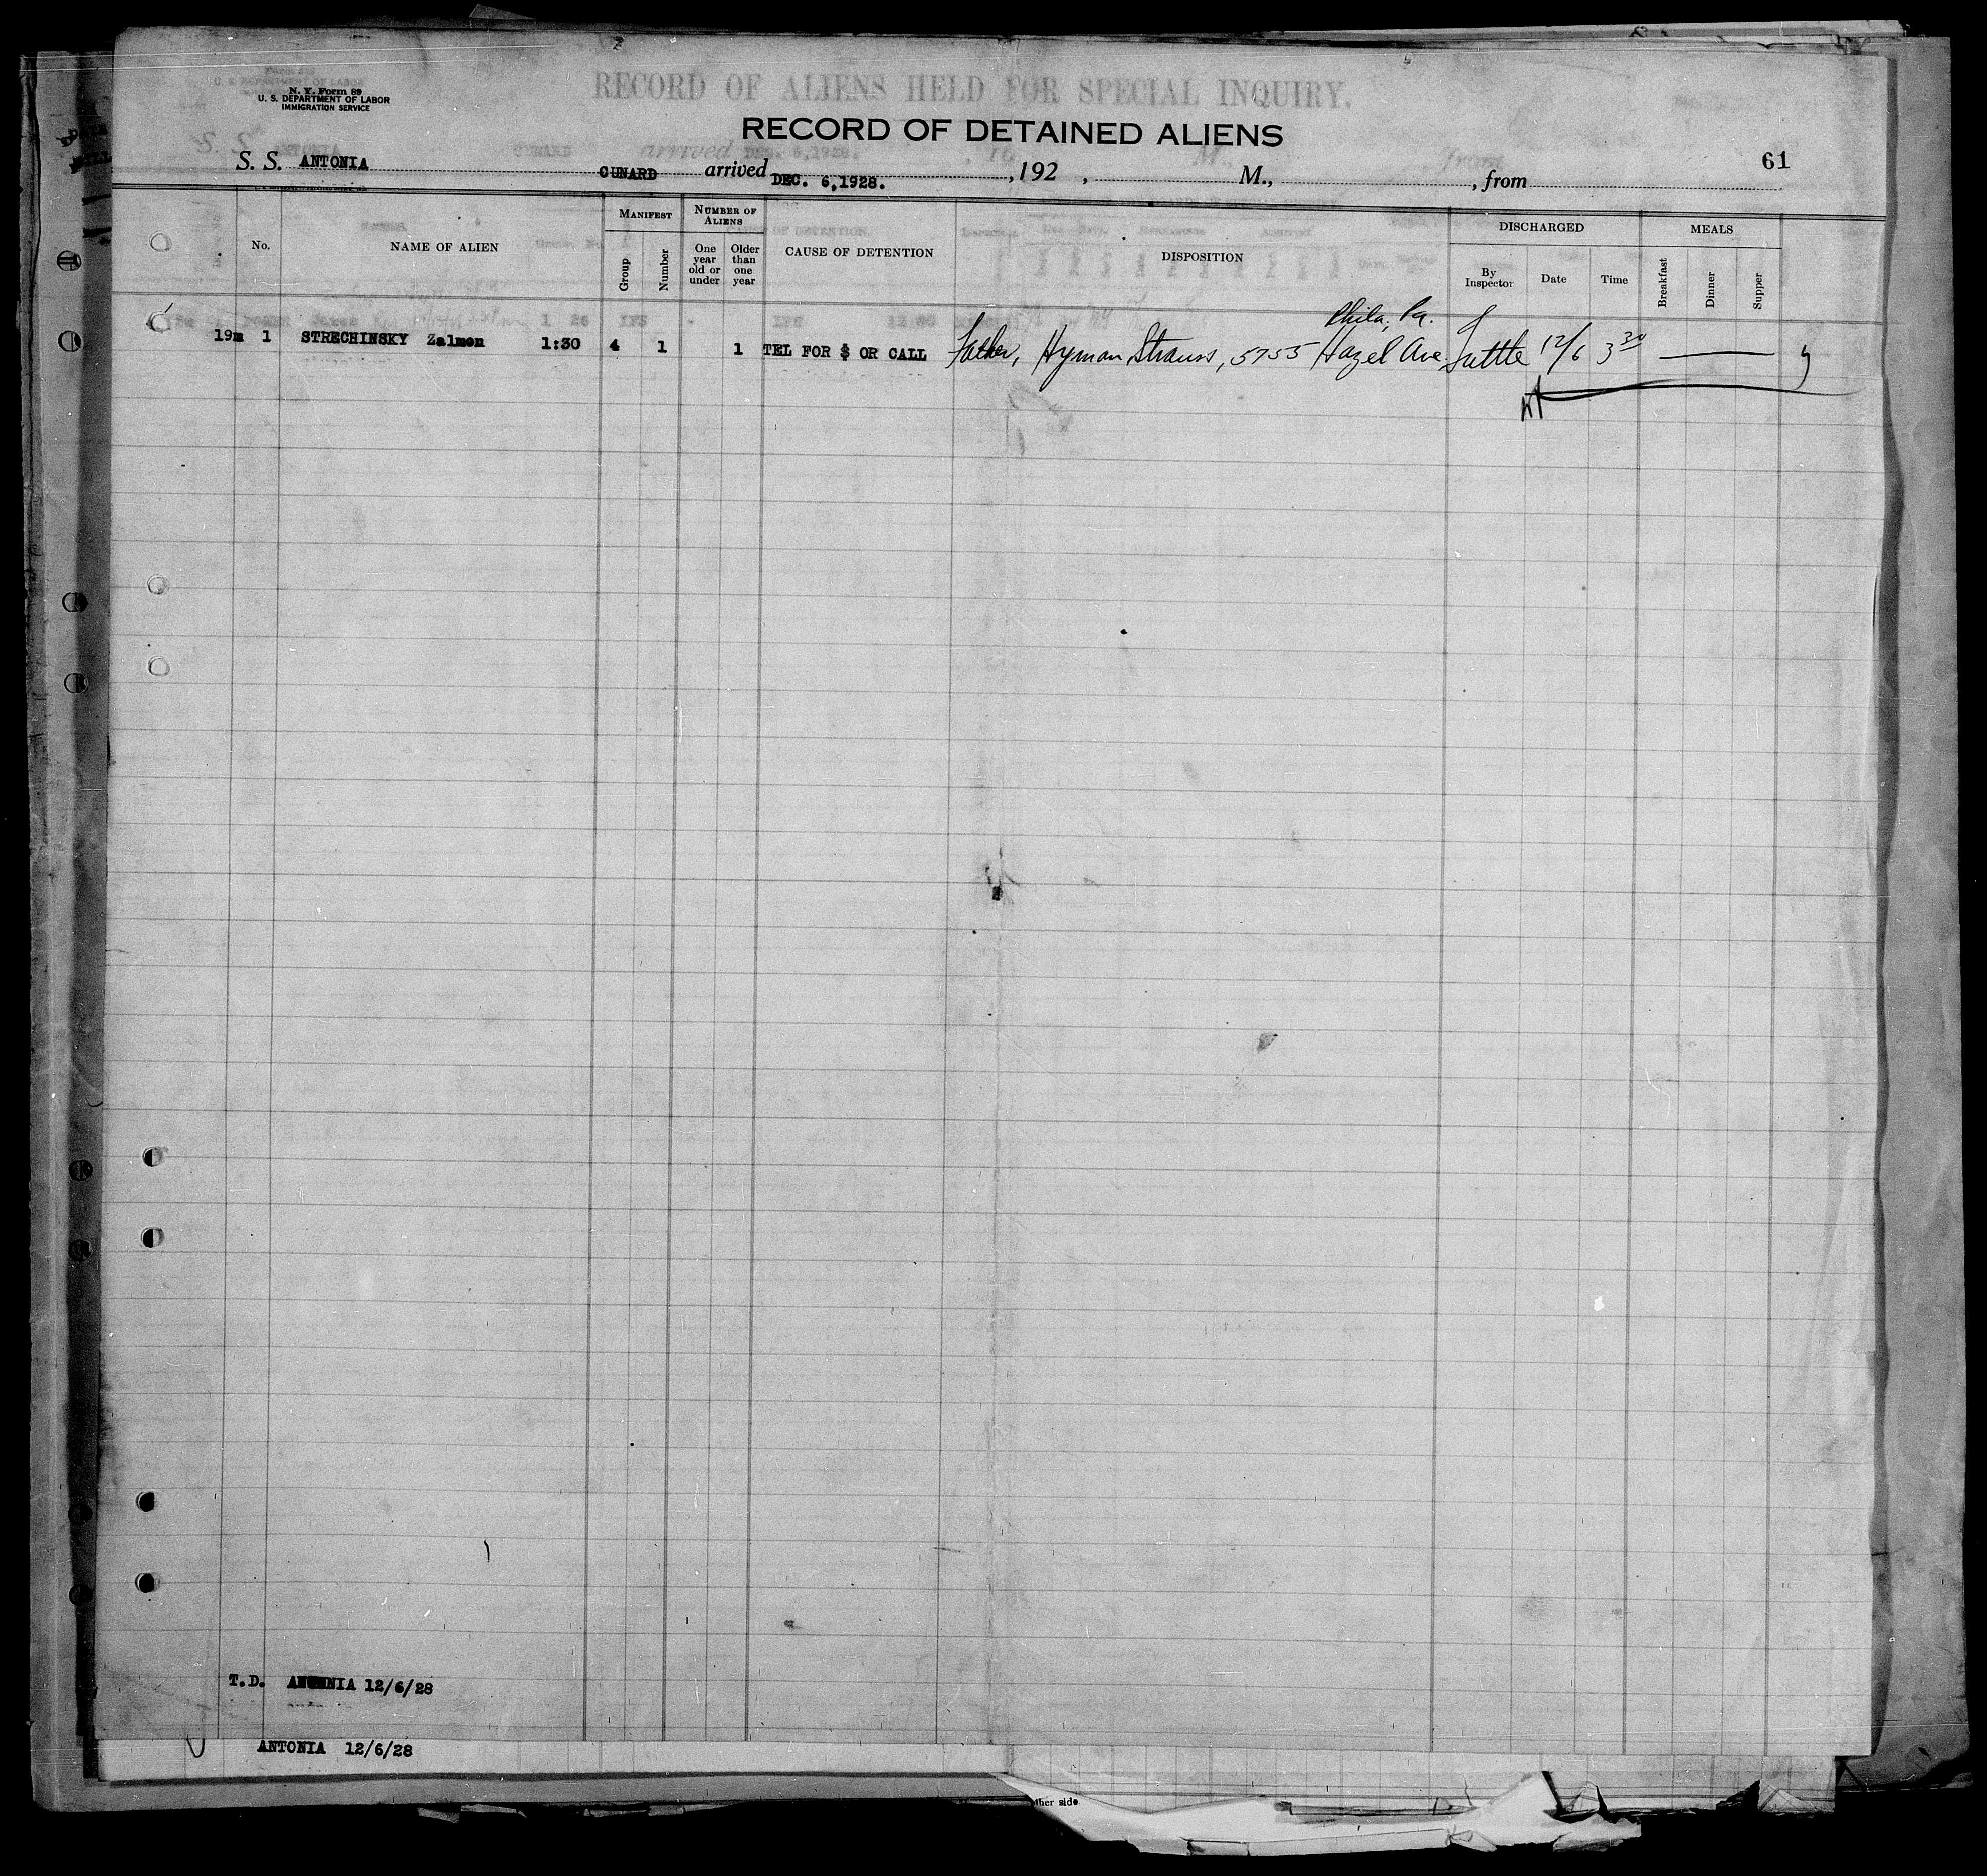 N. Y. Form 89
U. S. DEPARTMENT OF LABOR
IMMIGRATION SERVICE
RECORD OF ALIENS HELD FOR SPECIAL INQUIRY.
RECORD OF DETAINED ALIENS
61
S. S. ANTONIA CUNARD arrived DEC. 6,1928. , 192 , M., , from
No.
NAME OF ALIEN
MANIFEST
Group
Number
NUMBER OF ALIENS
One year old or under
Older than one year
CAUSE OF DETENTION
DISPOSITION
DISCHARGED
By Inspector
Date
Time
MEALS
Breakfast
Dinner
Supper
Phila, Pa.
19m 1 STRECHINSKY Zalmon 1:30 4 1 1 TEL FOR $ OR CALL Father, Hyman Strauss, 5755 Hazel Ave. Tuttle 12/6 3 30
T.D. ANTONIA 12/6/28
ANTONIA 12/6/28
ther side